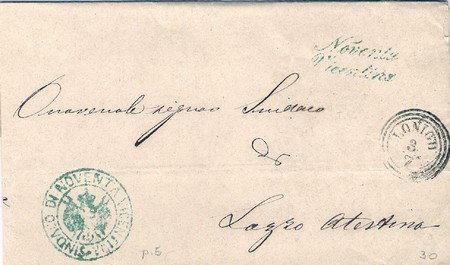 Noventa
Vicentina
Onorevole signor Sindaco
di
Lozzo Atestino
LONIGO
SINDACO DI NOVENTA VICENTINA
p. 5
30